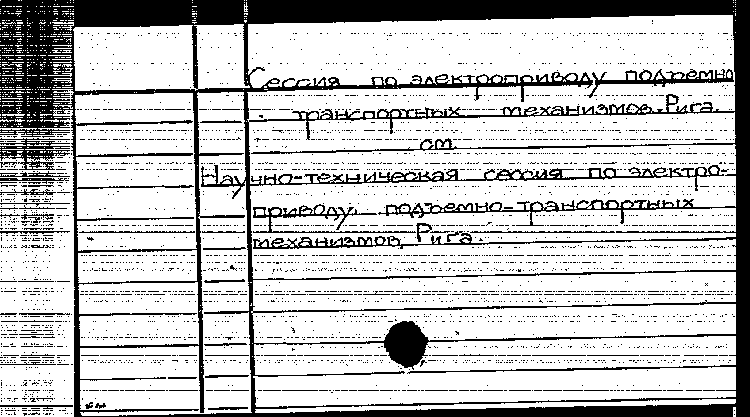 Сессия по электроприводу подъемно
транспортных механизмов. Рига.
см.
Научно-техническая сессия по электро-
приводу, подъемно-транспортных
механизмов, Рига.